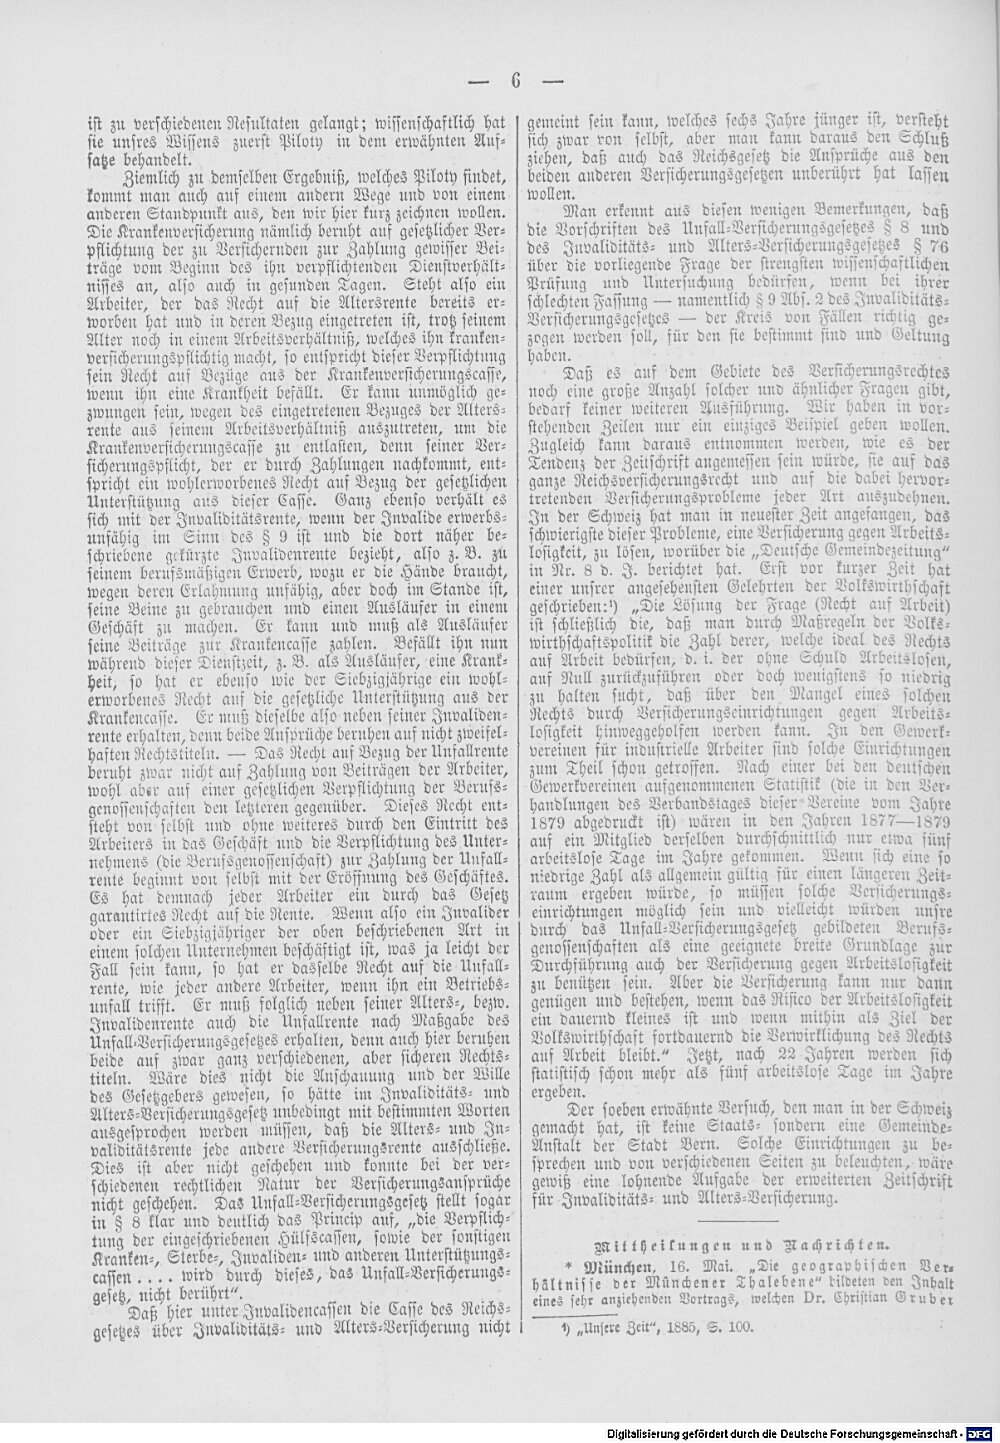 — 6 —
ist zu verschiedenen Resultaten gelangt; wissenschaftlich hat
sie unsres Wissens zuerst Piloty in dem erwähnten Auf-
satze behandelt.
Ziemlich zu demselben Ergebniß, welches Piloty findet,
kommt man auch auf einem andern Wege und von einem
anderen Standpunkt aus, den wir hier kurz zeichnen wollen.
Die Krankenversicherung nämlich beruht auf gesetzlicher Ver-
pflichtung der zu Versichernden zur Zahlung gewisser Bei-
träge vom Beginn des ihn verpflichtenden Dienstverhält-
nisses an, also auch in gesunden Tagen. Steht also ein
Arbeiter, der das Recht auf die Altersrente bereits er-
worben hat und in deren Bezug eingetreten ist, trotz seinem
Alter noch in einem Arbeitsverhältniß, welches ihn kranken-
versicherungspflichtig macht, so entspricht dieser Verpflichtung
sein Recht auf Bezüge aus der Krankenversicherungscasse,
wenn ihn eine Krankheit befällt. Er kann unmöglich ge-
zwungen sein, wegen des eingetretenen Bezuges der Alters-
rente aus seinem Arbeitsverhältniß auszutreten, um die
Krankenversicherungscasse zu entlasten, denn seiner Ver-
sicherungspflicht, der er durch Zahlungen nachkommt, ent-
spricht ein wohlerworbenes Recht auf Bezug der gesetzlichen
Unterstützung aus dieser Casse. Ganz ebenso verhält es
sich mit der Invaliditätsrente, wenn der Invalide erwerbs-
unfähig im Sinn des § 9 ist und die dort näher be-
schriebene gekürzte Invalidenrente bezieht, also z. B. zu
seinem berufsmäßigen Erwerb, wozu er die Hände braucht,
wegen deren Erlahmung unfähig, aber doch im Stande ist,
seine Beine zu gebrauchen und einen Ausläufer in einem
Geschäft zu machen. Er kann und muß als Ausläufer
seine Beiträge zur Krankencasse zahlen. Befällt ihn nun
während dieser Dienstzeit, z. B. als Ausläufer, eine Krank-
heit, so hat er ebenso wie der Siebzigjährige ein wohl-
erworbenes Recht auf die gesetzliche Unterstützung aus der
Krankencasse. Er muß dieselbe also neben seiner Invaliden-
rente erhalten, denn beide Ansprüche beruhen auf nicht zweifel-
haften Rechtstiteln. — Das Recht auf Bezug der Unfallrente
beruht zwar nicht auf Zahlung von Beiträgen der Arbeiter,
wohl aber auf einer gesetzlichen Verpflichtung der Berufs-
genossenschaften den letzteren gegenüber. Dieses Recht ent-
steht von selbst und ohne weiteres durch den Eintritt des
Arbeiters in das Geschäft und die Verpflichtung des Unter-
nehmens (die Berufsgenossenschaft) zur Zahlung der Unfall-
rente beginnt von selbst mit der Eröffnung des Geschäftes.
Es hat demnach jeder Arbeiter ein durch das Gesetz
garantirtes Recht auf die Rente. Wenn also ein Invalider
oder ein Siebzigjähriger der oben beschriebenen Art in
einem solchen Unternehmen beschäftigt ist, was ja leicht der
Fall sein kann, so hat er dasselbe Recht auf die Unfall-
rente, wie jeder andere Arbeiter, wenn ihn ein Betriebs-
unfall trifft. Er muß folglich neben seiner Alters-, bezw.
Invalidenrente auch die Unfallrente nach Maßgabe des
Unfall-Versicherungsgesetzes erhalten, denn auch hier beruhen
beide auf zwar ganz verschiedenen, aber sicheren Rechts-
titeln. Wäre dies nicht die Anschauung und der Wille
des Gesetzgebers gewesen, so hätte im Invaliditäts- und
Alters-Versicherungsgesetz unbedingt mit bestimmten Worten
ausgesprochen werden müssen, daß die Alters- und In-
validitätsrente jede andere Versicherungsrente ausschließe.
Dies ist aber nicht geschehen und konnte bei der ver-
schiedenen rechtlichen Natur der Versicherungsansprüche
nicht geschehen. Das Unfall-Versicherungsgesetz stellt sogar
in § 8 klar und deutlich das Princip auf, „die Verpflich-
tung der eingeschriebenen Hülfscassen, sowie der sonstigen
Kranken-, Sterbe-, Invaliden- und anderen Unterstützungs-
cassen .... wird durch dieses, das Unfall-Versicherungs-
gesetz, nicht berührt“.
Daß hier unter Invalidencassen die Casse des Reichs-
gesetzes über Invaliditäts- und Alters-Versicherung nicht
gemeint sein kann, welches sechs Jahre jünger ist, versteht
sich zwar von selbst, aber man kann daraus den Schluß
ziehen, daß auch das Reichsgesetz die Ansprüche aus den
beiden anderen Versicherungsgesetzen unberührt hat lassen
wollen.
Man erkennt aus diesen wenigen Bemerkungen, daß
die Vorschriften des Unfall-Versicherungsgesetzes § 8 und
des Invaliditäts- und Alters-Versicherungsgesetzes § 76
über die vorliegende Frage der strengsten wissenschaftlichen
Prüfung und Untersuchung bedürfen, wenn bei ihrer
schlechten Fassung — namentlich § 9 Abs. 2 des Invaliditäts-
Versicherungsgesetzes — der Kreis von Fällen richtig ge-
zogen werden soll, für den sie bestimmt sind und Geltung
haben.
Daß es auf dem Gebiete des Versicherungsrechtes
noch eine große Anzahl solcher und ähnlicher Fragen gibt,
bedarf keiner weiteren Ausführung. Wir haben in vor-
stehenden Zeilen nur ein einziges Beispiel geben wollen.
Zugleich kann daraus entnommen werden, wie es der
Tendenz der Zeitschrift angemessen sein würde, sie auf das
ganze Reichsversicherungsrecht und auf die dabei hervor-
tretenden Versicherungsprobleme jeder Art auszudehnen.
In der Schweiz hat man in neuester Zeit angefangen, das
schwierigste dieser Probleme, eine Versicherung gegen Arbeits-
losigkeit, zu lösen, worüber die „Deutsche Gemeindezeitung“
in Nr. 8 d. J. berichtet hat. Erst vor kurzer Zeit hat
einer unsrer angesehensten Gelehrten der Volkswirthschaft
geschrieben:¹) „Die Lösung der Frage (Recht auf Arbeit)
ist schließlich die, daß man durch Maßregeln der Volks-
wirthschaftspolitik die Zahl derer, welche ideal des Rechts
auf Arbeit bedürfen, d. i. der ohne Schuld Arbeitslosen,
auf Null zurückzuführen oder doch wenigstens so niedrig
zu halten sucht, daß über den Mangel eines solchen
Rechts durch Versicherungseinrichtungen gegen Arbeits-
losigkeit hinweggeholfen werden kann. In den Gewerk-
vereinen für industrielle Arbeiter sind solche Einrichtungen
zum Theil schon getroffen. Nach einer bei den deutschen
Gewerkvereinen aufgenommenen Statistik (die in den Ver-
handlungen des Verbandstages dieser Vereine vom Jahre
1879 abgedruckt ist) wären in den Jahren 1877—1879
auf ein Mitglied derselben durchschnittlich nur etwa fünf
arbeitslose Tage im Jahre gekommen. Wenn sich eine so
niedrige Zahl als allgemein gültig für einen längeren Zeit-
raum ergeben würde, so müssen solche Versicherungs-
einrichtungen möglich sein und vielleicht würden unsre
durch das Unfall-Versicherungsgesetz gebildeten Berufs-
genossenschaften als eine geeignete breite Grundlage zur
Durchführung auch der Versicherung gegen Arbeitslosigkeit
zu benützen sein. Aber die Versicherung kann nur dann
genügen und bestehen, wenn das Risico der Arbeitslosigkeit
ein dauernd kleines ist und wenn mithin als Ziel der
Volkswirthschaft fortdauernd die Verwirklichung des Rechts
auf Arbeit bleibt.“ Jetzt, nach 22 Jahren werden sich
statistisch schon mehr als fünf arbeitslose Tage im Jahre
ergeben.
Der soeben erwähnte Versuch, den man in der Schweiz
gemacht hat, ist keine Staats- sondern eine Gemeinde-
Anstalt der Stadt Bern. Solche Einrichtungen zu be-
sprechen und von verschiedenen Seiten zu beleuchten, wäre
gewiß eine lohnende Aufgabe der erweiterten Zeitschrift
für Invaliditäts- und Alters-Versicherung.
Mittheilungen und Nachrichten.
* München, 16. Mai. „Die geographischen Ver-
hältnisse der Münchener Thalebene“ bildeten den Inhalt
eines sehr anziehenden Vortrags, welchen Dr. Christian Gruber
¹) „Unsere Zeit“, 1885, S. 100.
Digitalisierung gefördert durch die Deutsche Forschungsgemeinschaft - DFG